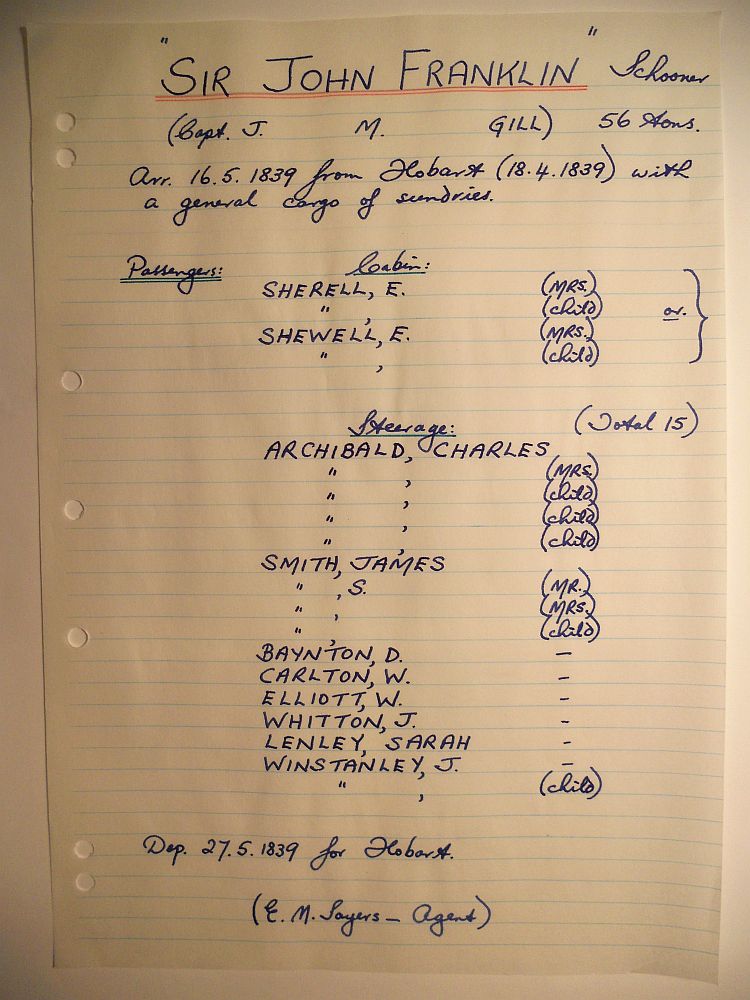 "SIR JOHN FRANKLIN" Schooner
(Capt. J. M. GILL) 56 tons.
Arr. 16.5.1839 from Hobart (18.4.1839) with
a general cargo of sundries.
Passengers: Cabin:
SHERELL, E. (MRS.)
" , (child)
or.
SHEWELL, E. (MRS.)
" , (child)
Steerage: (Total 15)
ARCHIBALD, CHARLES
" , (MRS.)
" , (child)
" , (child)
" , (child)
SMITH, JAMES
" , S. (MR.)
" , (MRS.)
" , (child)
BAYNTON, D. –
CARLTON, W. –
ELLIOTT, W. –
WHITTON, J. –
LENLEY, SARAH –
WINSTANLEY, J. –
" , (child)
Dep. 27.5.1839 for Hobart.
(E. M. Sayers – Agent)